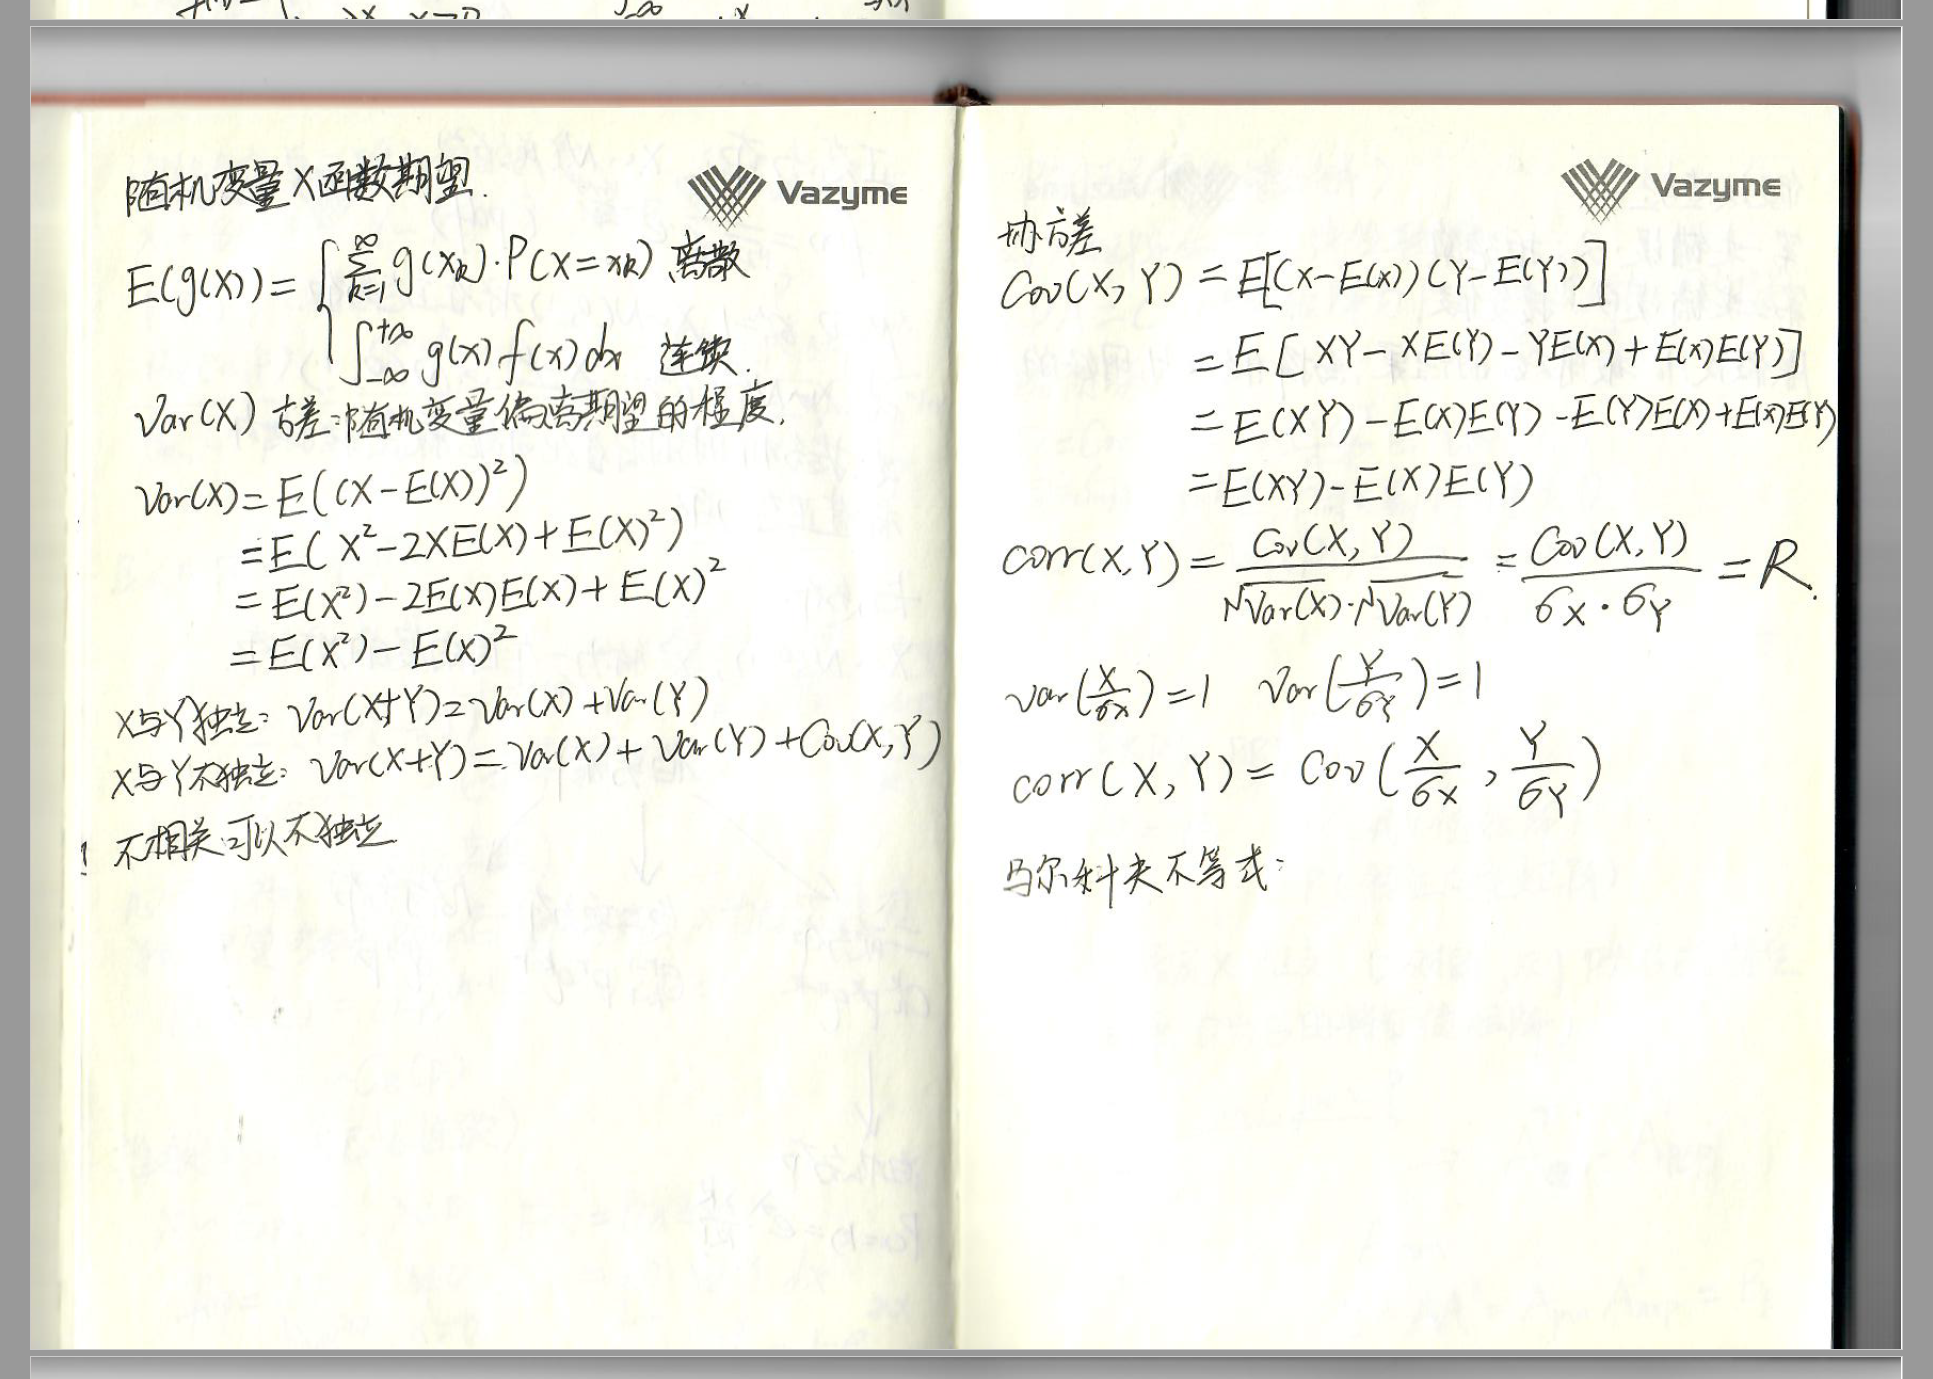 随机变量X函数期望.
Vazyme
E(g(X)) = { ∑_{k=1}^{∞} g(x_k)·P(X=x_k) 离散
∫_{-∞}^{+∞} g(x) f(x) dx 连续.
Var(X) 方差:随机变量偏离期望的程度.
Var(X) = E((X-E(X))²)
= E(X²-2XE(X)+E(X)²)
= E(X²)-2E(X)E(X)+E(X)²
= E(X²)-E(X)²
X与Y独立: Var(X+Y)=Var(X)+Var(Y)
X与Y不独立: Var(X+Y)=Var(X)+Var(Y)+Cov(X,Y)
! 不相关可以不独立
Vazyme
协方差
Cov(X,Y) = E[(X-E(X))(Y-E(Y))]
= E[XY-XE(Y)-YE(X)+E(X)E(Y)]
= E(XY)-E(X)E(Y)-E(Y)E(X)+E(X)E(Y)
= E(XY)-E(X)E(Y)
corr(X,Y) = Cov(X,Y)/(√Var(X)·√Var(Y)) = Cov(X,Y)/(σ_X·σ_Y) = R.
Var(X/σ_X)=1 Var(Y/σ_Y)=1
corr(X,Y) = Cov(X/σ_X, Y/σ_Y)
马尔科夫不等式: